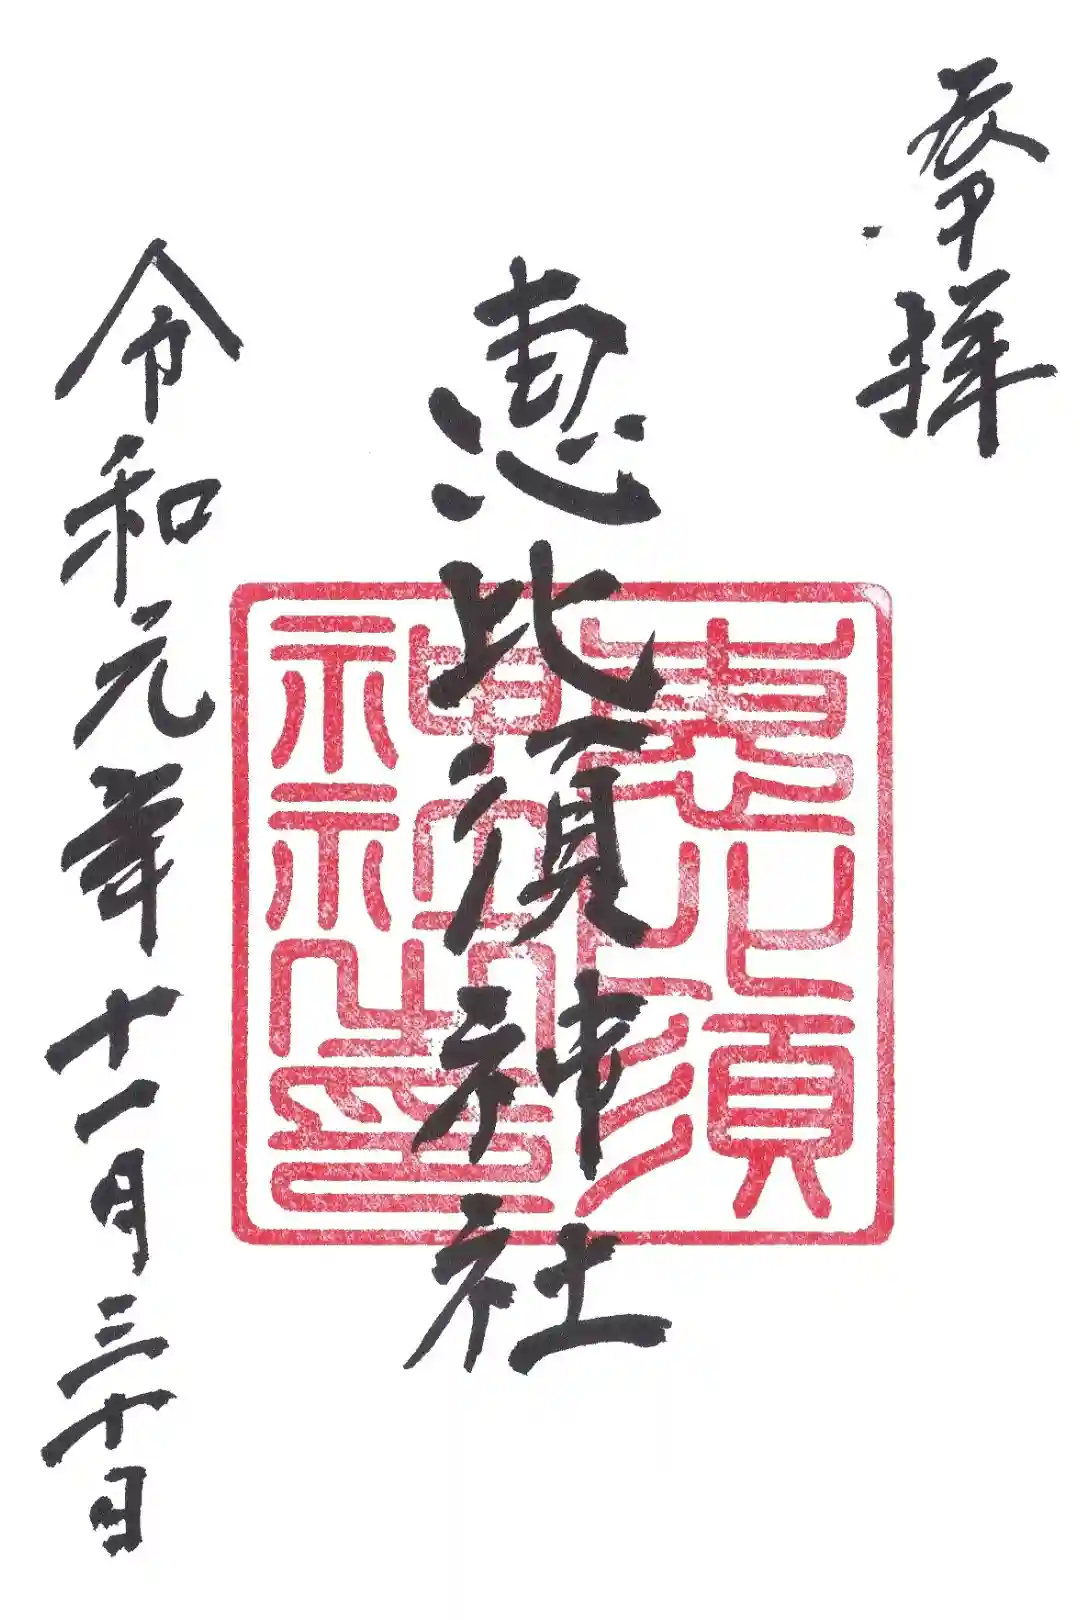 奉拝
恵比須神社
令和元年十一月三十日
恵比須
神社之印